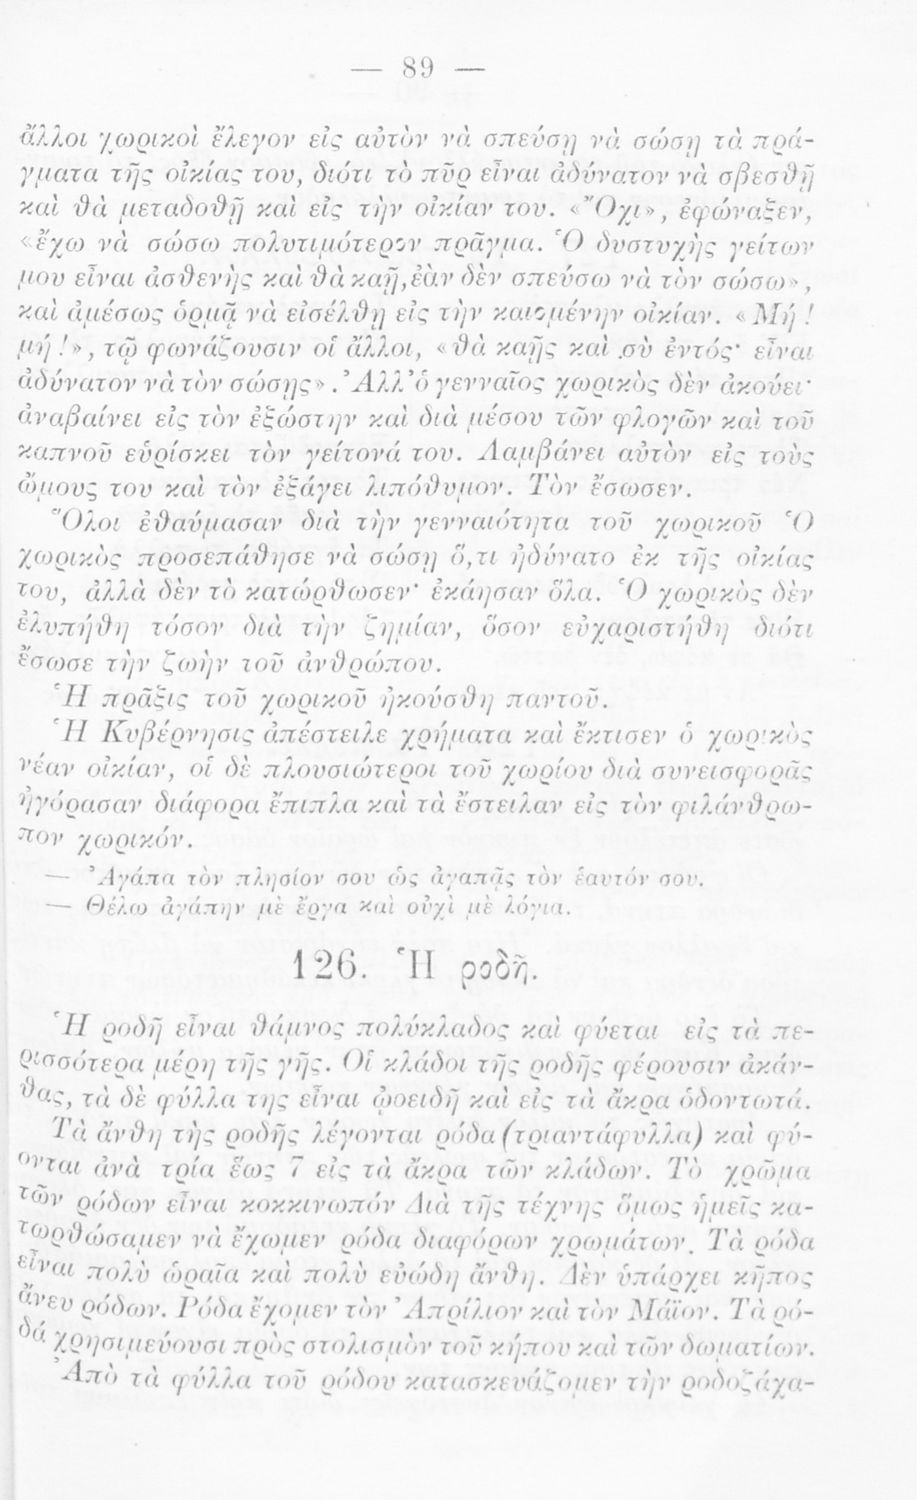 — 89 —
ἄλλοι χωρικοὶ ἔλεγον εἰς αὐτὸν νὰ σπεύσῃ νὰ σώσῃ τὰ πρά-
γματα τῆς οἰκίας του, διότι τὸ πῦρ εἶναι ἀδύνατον νὰ σβεσθῇ
καὶ θὰ μεταδοθῇ καὶ εἰς τὴν οἰκίαν του. «Ὄχι», ἐφώναξεν,
«ἔχω νὰ σώσω πολυτιμότερον πρᾶγμα. Ὁ δυστυχὴς γείτων
μου εἶναι ἀσθενὴς καὶ θὰ καῇ, ἐὰν δὲν σπεύσω νὰ τὸν σώσω»,
καὶ ἀμέσως ὁρμᾷ νὰ εἰσέλθῃ εἰς τὴν καιομένην οἰκίαν. «Μή!
μή!», τῷ φωνάζουσιν οἱ ἄλλοι, «θὰ καῇς καὶ σὺ ἐντός· εἶναι
ἀδύνατον νὰ τὸν σώσῃς». Ἀλλ' ὁ γενναῖος χωρικὸς δὲν ἀκούει·
ἀναβαίνει εἰς τὸν ἐξώστην καὶ διὰ μέσου τῶν φλογῶν καὶ τοῦ
καπνοῦ εὑρίσκει τὸν γείτονά του. Λαμβάνει αὐτὸν εἰς τοὺς
ὤμους του καὶ τὸν ἐξάγει λιπόθυμον. Τὸν ἔσωσεν.
Ὅλοι ἐθαύμασαν διὰ τὴν γενναιότητα τοῦ χωρικοῦ Ὁ
χωρικὸς προσεπάθησε νὰ σώσῃ ὅ,τι ἠδύνατο ἐκ τῆς οἰκίας
του, ἀλλὰ δὲν τὸ κατώρθωσεν· ἐκάησαν ὅλα. Ὁ χωρικὸς δὲν
ἐλυπήθη τόσον διὰ τὴν ζημίαν, ὅσον εὐχαριστήθη διότι
ἔσωσε τὴν ζωὴν τοῦ ἀνθρώπου.
Ἡ πρᾶξις τοῦ χωρικοῦ ἠκούσθη παντοῦ.
Ἡ Κυβέρνησις ἀπέστειλε χρήματα καὶ ἔκτισεν ὁ χωρικὸς
νέαν οἰκίαν, οἱ δὲ πλουσιώτεροι τοῦ χωρίου διὰ συνεισφορᾶς
ἠγόρασαν διάφορα ἔπιπλα καὶ τὰ ἔστειλαν εἰς τὸν φιλάνθρω-
πον χωρικόν.
— Ἀγάπα τὸν πλησίον σου ὡς ἀγαπᾷς τὸν ἑαυτόν σου.
— Θέλω ἀγάπην μὲ ἔργα καὶ οὐχὶ μὲ λόγια.
126. Ἡ ροδῆ.
Ἡ ροδῆ εἶναι θάμνος πολύκλαδος καὶ φύεται εἰς τὰ πε-
ρισσότερα μέρη τῆς γῆς. Οἱ κλάδοι τῆς ροδῆς φέρουσιν ἀκάν-
θας, τὰ δὲ φύλλα της εἶναι ᾠοειδῆ καὶ εἰς τὰ ἄκρα ὀδοντωτά.
Τὰ ἄνθη τῆς ροδῆς λέγονται ρόδα (τριαντάφυλλα) καὶ φύ-
ονται ἀνὰ τρία ἕως 7 εἰς τὰ ἄκρα τῶν κλάδων. Τὸ χρῶμα
τῶν ρόδων εἶναι κοκκινωπόν Διὰ τῆς τέχνης ὅμως ἡμεῖς κα-
τωρθώσαμεν νὰ ἔχωμεν ρόδα διαφόρων χρωμάτων. Τὰ ρόδα
εἶναι πολὺ ὡραῖα καὶ πολὺ εὐώδη ἄνθη. Δὲν ὑπάρχει κῆπος
ἄνευ ρόδων. Ρόδα ἔχομεν τὸν Ἀπρίλιον καὶ τὸν Μάϊον. Τὰ ρό-
δα χρησιμεύουσι πρὸς στολισμὸν τοῦ κήπου καὶ τῶν δωματίων.
Ἀπὸ τὰ φύλλα τοῦ ρόδου κατασκευάζομεν τὴν ροδοζάχα-